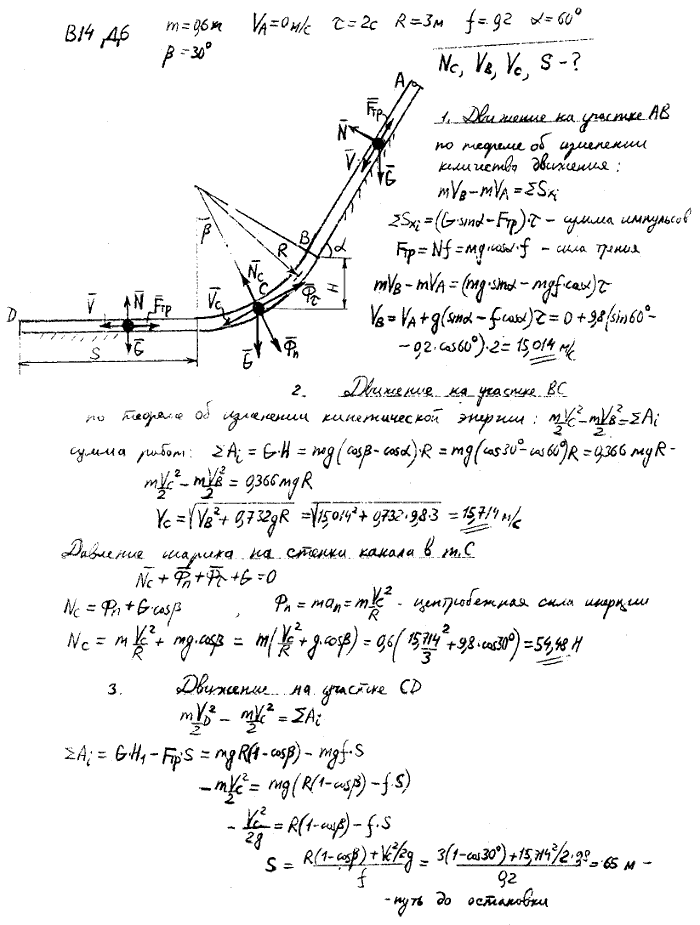 В14 Д6 m=0,6кг V_A=0 м/с τ=2с R=3м f=0,2 α=60°
β=30°
N_C, V_B, V_C, S-?
A
F̅тр
N̅
V̅
G̅
B
α
H
R
β
N̅_C
C
V̅_C
Φ̅τ
G̅
Φ̅n
D
V̅
N̅
F̅тр
G̅
S
1. Движение на участке AB
по теореме об изменении
количества движения:
mV_B-mV_A=ΣS_xi
ΣS_xi=(G·sinα-Fтр)·τ - сумма импульсов
Fтр=Nf=mg·cosα·f - сила трения
mV_B-mV_A=(mg·sinα-mgf·cosα)τ
V_B=V_A+g(sinα-f·cosα)τ=0+9,8(sin60°-
-0,2·cos60°)·2=15,014 м/с
2. Движение на участке BC
по теореме об изменении кинетической энергии: mV_C²/2-mV_B²/2=ΣA_i
сумма работ: ΣA_i=G·H=mg(cosβ-cosα)·R=mg(cos30°-cos60°)R=0,366mgR-
mV_C²/2-mV_B²/2=0,366mgR
V_C=√(V_B²+0,732gR)=√(15,014²+0,732·9,8·3)=15,714 м/с
Давление шарика на стенки канала в т.C
N̅_C+Φ̅n+Φ̅τ+G=0
N_C=Φn+G·cosβ , Φn=man=mV_C²/R - центробежная сила инерции
N_C=mV_C²/R+mg·cosβ=m(V_C²/R+g·cosβ)=0,6(15,714²/3+9,8·cos30°)=54,48 Н
3. Движение на участке CD
mV_D²/2-mV_C²/2=ΣA_i
ΣA_i=G·H₁-Fтр·S=mgR(1-cosβ)-mgf·S
-mV_C²/2=mg(R(1-cosβ)-f·S)
-V_C²/2g=R(1-cosβ)-f·S
S=(R(1-cosβ)+V_C²/2g)/f=(3(1-cos30°)+15,714²/2·9,8)/0,2=65 м -
-путь до остановки